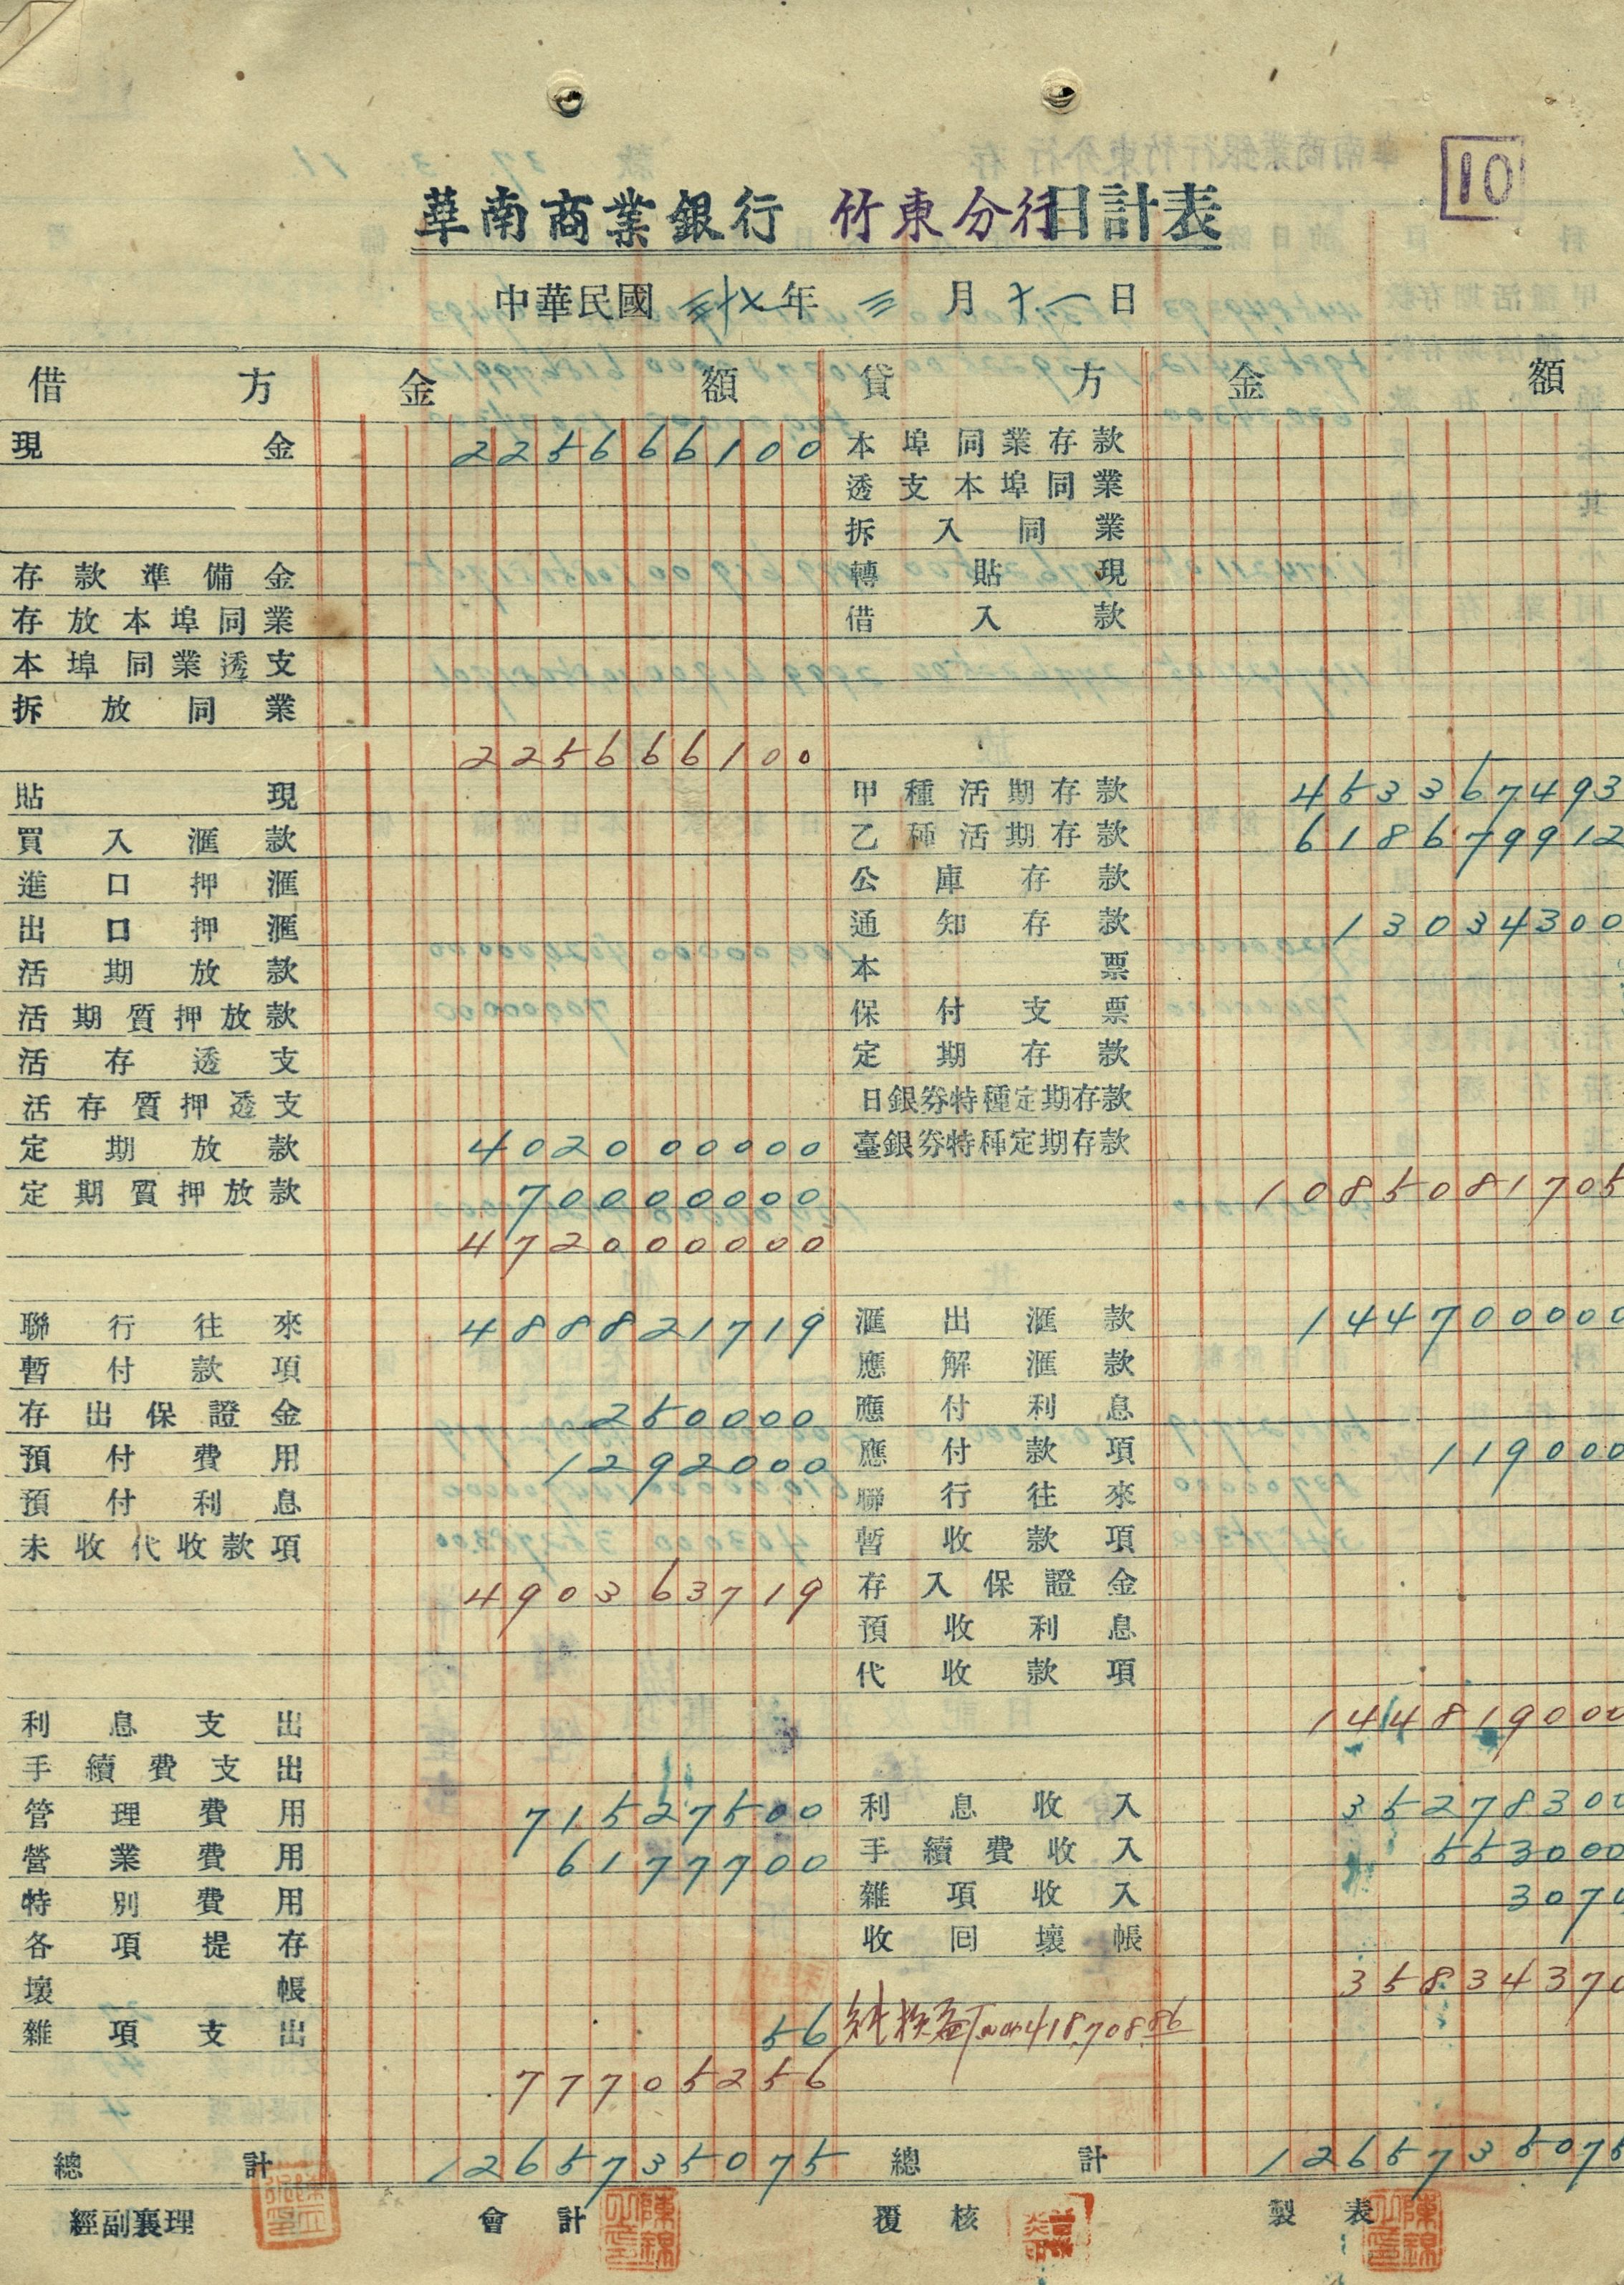 10
華南商業銀行 竹東分行日計表
中華民國 三十七年 三 月 十一 日
借方 金額 貸方 金額
現金 225666100 本埠同業存款
透支本埠同業
拆入同業
存款準備金 轉貼現
存放本埠同業 借入款
本埠同業透支
拆放同業
225666100
貼現 甲種活期存款 453367493
買入滙款 乙種活期存款 618679912
進口押滙 公庫存款
出口押滙 通知存款 13034300
活期放款 本票
活期質押放款 保付支票
活存透支 定期存款
活存質押透支 日銀券特種定期存款
定期放款 402000000 臺銀券特種定期存款
定期質押放款 70000000 1085081705
472000000
聯行往來 488821719 滙出滙款 144700000
暫付款項 應解滙款
存出保證金 250000 應付利息
預付費用 1292000 應付款項 119000
預付利息 聯行往來
未收代收款項 暫收款項
490363719 存入保證金
預收利息
代收款項
利息支出 144819000
手續費支出
管理費用 71527500 利息收入 35278300
營業費用 6177700 手續費收入 553000
特別費用 雜項收入 3070
各項提存 收回壞帳
壞帳 35834370
雜項支出 56 純損益 418,708.86
77705256
總計 1265735075 總計 1265735075
經副襄理 會計 覆核 製表